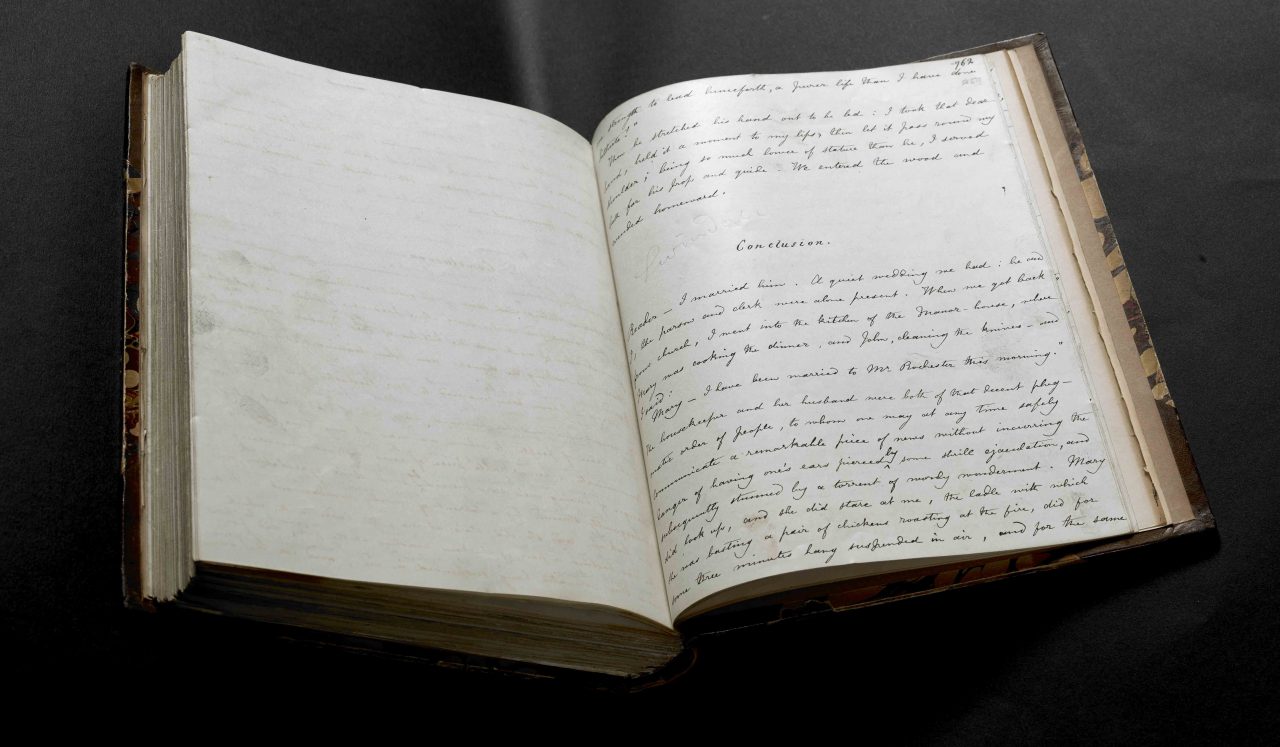 strength to lead henceforth, a purer life than I have done
hitherto!"
Then he stretched his hand out to be led : I took that dear
hand, held it a moment to my lips, then let it pass round my
shoulder ; being so much lower of stature than he, I served
both for his prop and guide. We entered the wood and
wended homeward.
Conclusion.
Reader — I married him . A quiet wedding we had : he and
I, the parson and clerk were alone present . When we got back
from church, I went into the kitchen of the Manor-house, where
Mary was cooking the dinner , and John, cleaning the knives — and
I said :
"Mary — I have been married to Mr Rochester this morning."
The housekeeper and her husband were both of that decent phleg-
matic order of people, to whom one may at any time safely
communicate a remarkable piece of news without incurring the
danger of having one's ears pierced by some shrill ejaculation, and
subsequently stunned by a torrent of wordy wonderment . Mary
did look up, and she did stare at me , the ladle with which
she was basting a pair of chickens roasting at the fire, did for
some three minutes hang suspended in air , and for the same